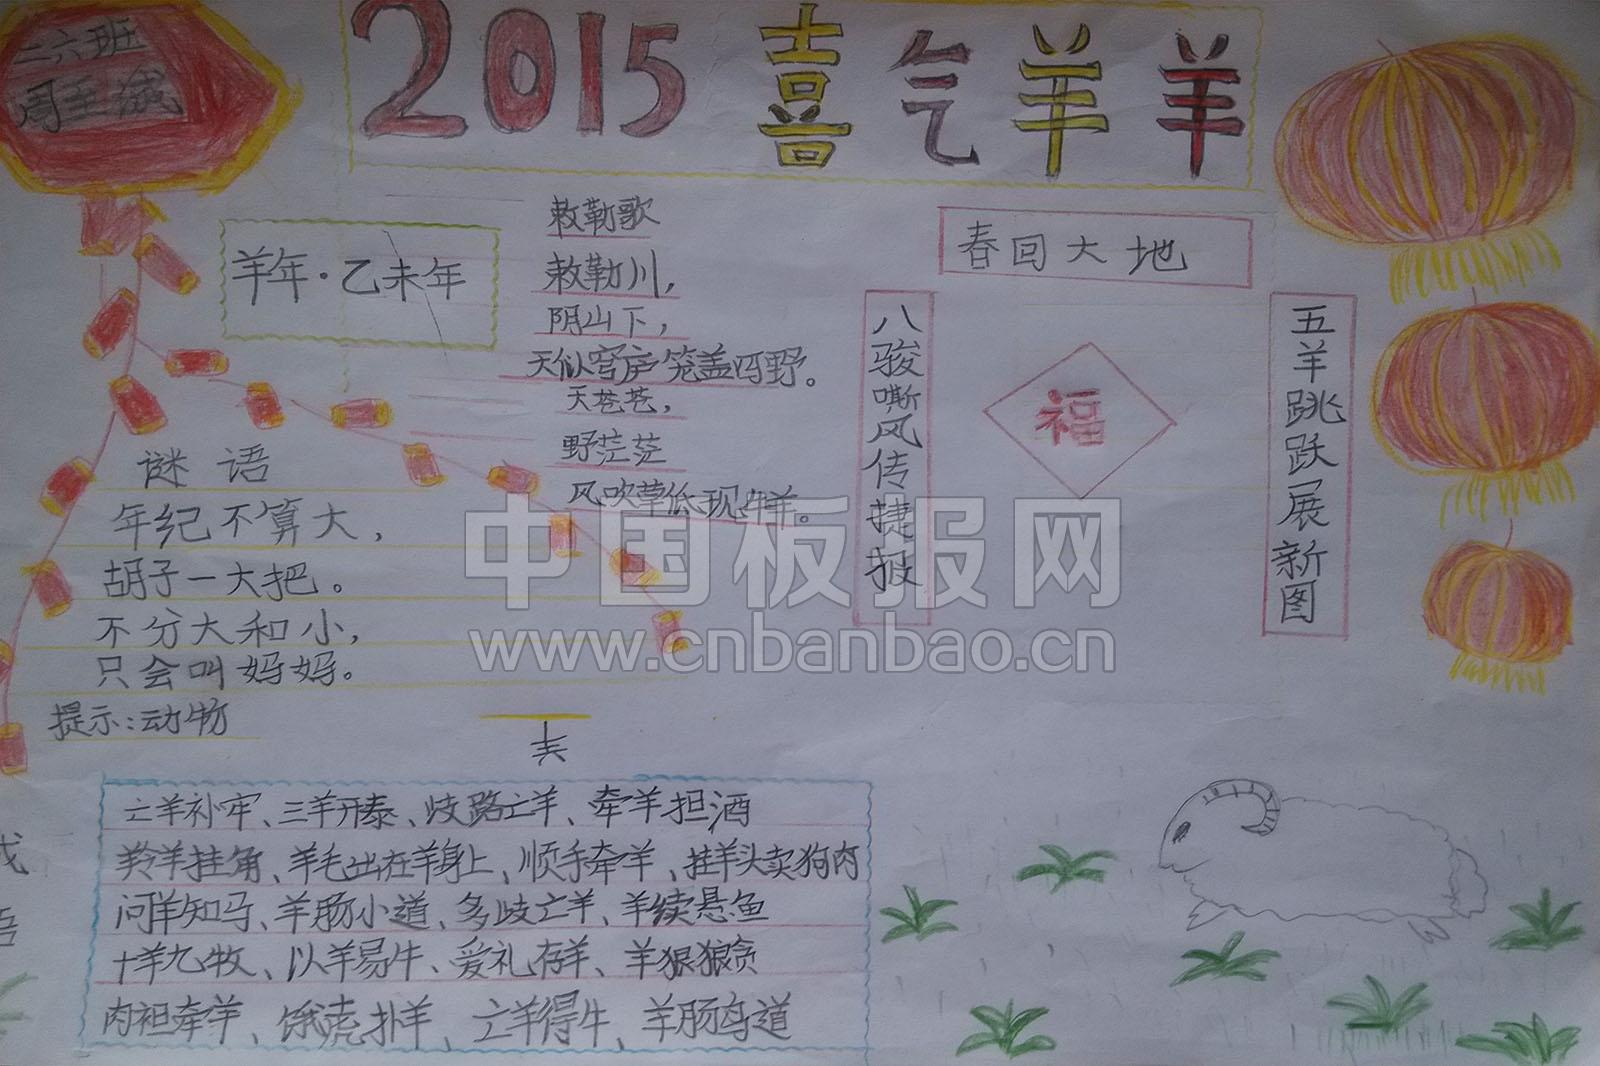 二六班
周至诚
2015 喜气羊羊
羊年·乙未年
敕勒歌
敕勒川，
阴山下，
天似穹庐笼盖四野。
天苍苍，
野茫茫
风吹草低现牛羊。
春回大地
八骏嘶风传捷报
福
五羊跳跃展新图
谜语
年纪不算大，
胡子一大把。
不分大和小，
只会叫妈妈。
提示：动物
羊
成
语
亡羊补牢、三羊开泰、歧路亡羊、牵羊担酒
羚羊挂角、羊毛出在羊身上、顺手牵羊、挂羊头卖狗肉
问羊知马、羊肠小道、多歧亡羊、羊续悬鱼
十羊九牧、以羊易牛、爱礼存羊、羊狠狼贪
肉袒牵羊、饿虎扑羊、亡羊得牛、羊肠鸟道
中国板报网
www.cnbanbao.cn